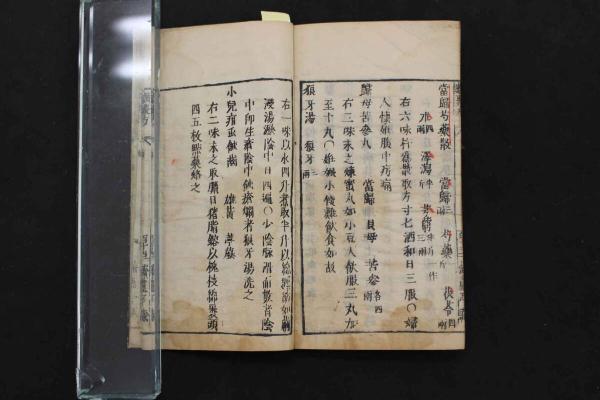 當歸芍藥散 當歸三兩 芍藥斤 茯苓四兩
朮四兩 澤瀉半斤 芎藭三兩
右六味杵爲散取方寸匕酒和日三服〇婦
人懷娠腹中㽲痛
歸母苦參丸 當歸 貝母 苦參各四兩
右三味末之煉蜜丸如小豆大飲服三丸加
至十丸〇妊娠小便難飲食如故
狼牙湯 狼牙三兩
右一味以水四升煮取半升以綿纏筯如繭
浸湯瀝陰中日四遍〇少陰脉滑而數者陰
中即生瘡陰中蝕瘡爛者狼牙湯洗之
小兒疳蟲蝕齒 雄黃 葶藶
右二味末之取臘日猪脂鎔以槐枝綿裹頭
四五枚點藥烙之